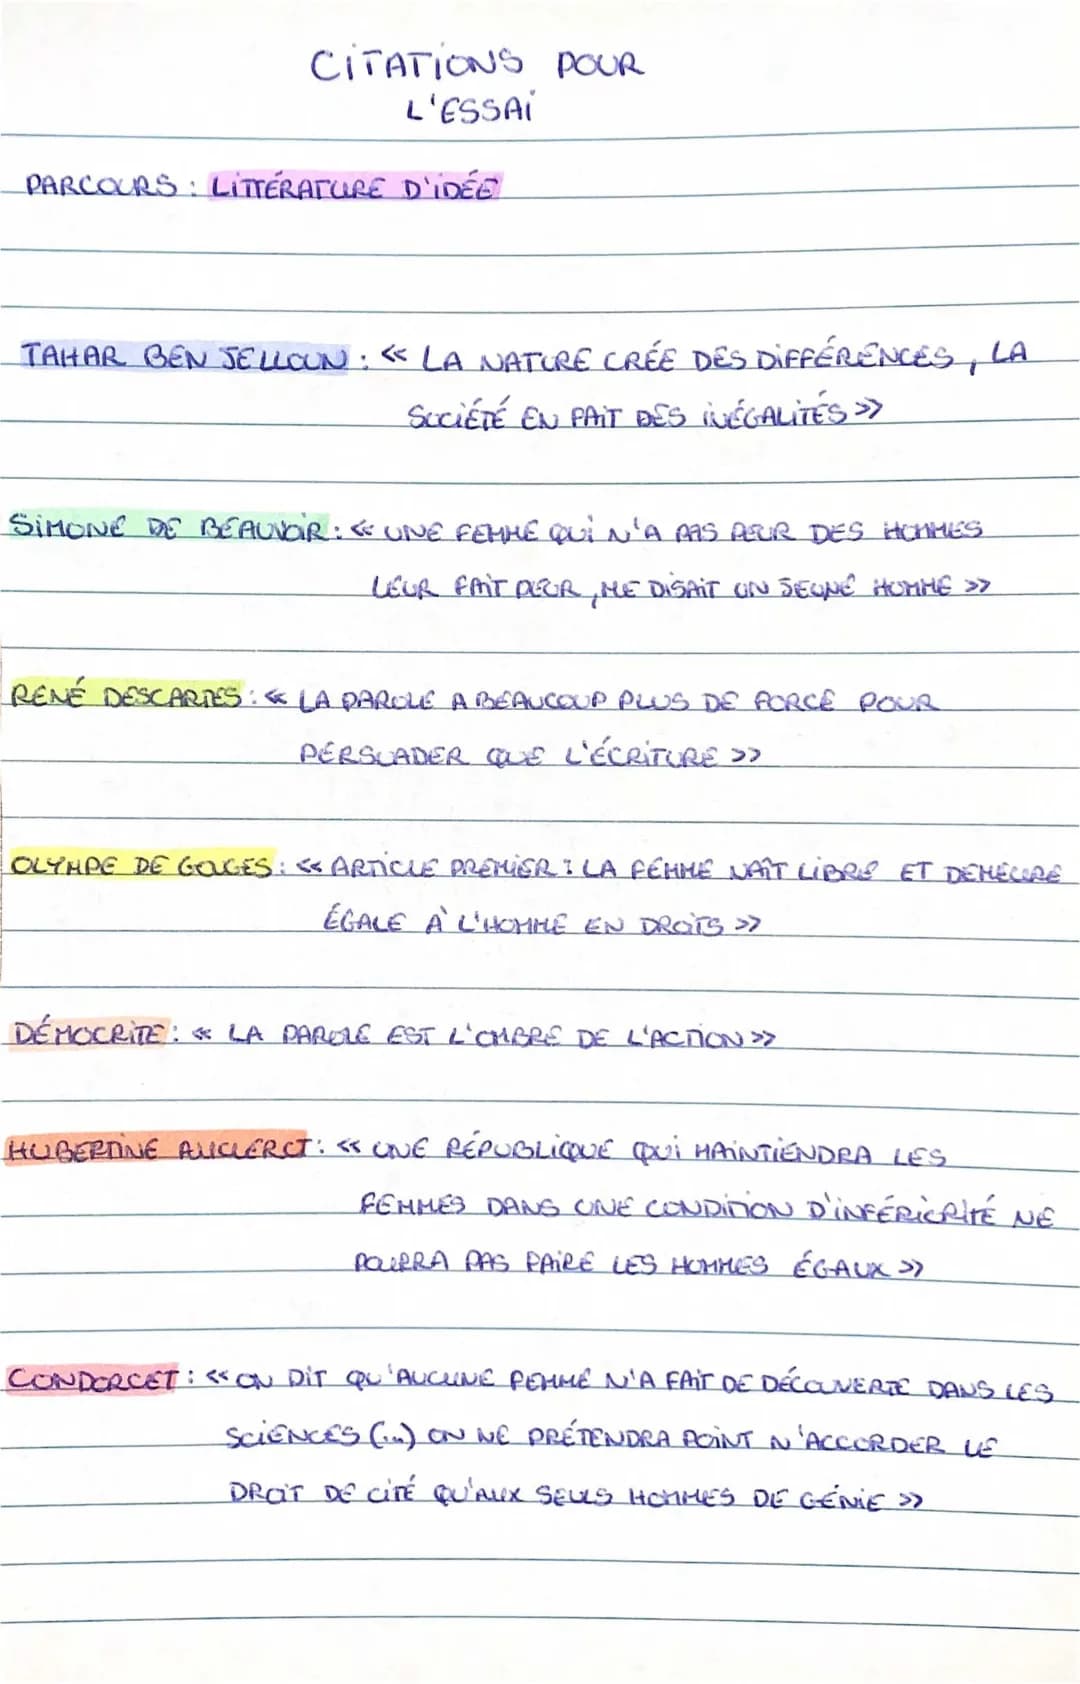 CITATIONS POUR
L'ESSAI
PARCOURS : LITTÉRATURE D'IDÉE
TAHAR BEN JELLOUN : « LA NATURE CRÉE DES DIFFÉRENCES, LA
SOCIÉTÉ EN FAIT DES INÉGALITÉS »
SIMONE DE BEAUVOIR : « UNE FEMME QUI N'A PAS PEUR DES HOMMES
LEUR FAIT PEUR, ME DISAIT UN JEUNE HOMME »
RENÉ DESCARTES : « LA PAROLE A BEAUCOUP PLUS DE FORCE POUR
PERSUADER QUE L'ÉCRITURE »
OLYMPE DE GOUGES : « ARTICLE PREMIER : LA FEMME NAÎT LIBRE ET DEMEURE
ÉGALE À L'HOMME EN DROITS »
DÉMOCRITE : « LA PAROLE EST L'OMBRE DE L'ACTION »
HUBERTINE AUCLERCT : « UNE RÉPUBLIQUE QUI MAINTIENDRA LES
FEMMES DANS UNE CONDITION D'INFÉRIORITÉ NE
POURRA PAS FAIRE LES HOMMES ÉGAUX »
CONDORCET : « ON DIT QU'AUCUNE FEMME N'A FAIT DE DÉCOUVERTE DANS LES
SCIENCES (...) ON NE PRÉTENDRA POINT N'ACCORDER LE
DROIT DE CITÉ QU'AUX SEULS HOMMES DE GÉNIE »